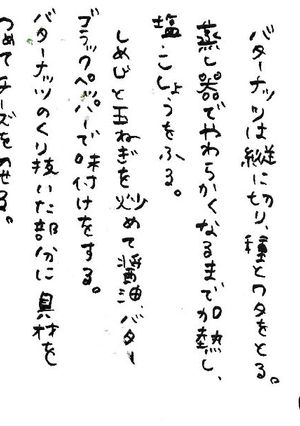 バターナッツは縦に切り、種とワタをとる。
蒸し器でやわらかくなるまで加熱し、
塩・こしょうをふる。
しめじと玉ねぎを炒めて醤油、バター
ブラックペッパーで味付けをする。
バターナッツのくり抜いた部分に具材を
つめてチーズをのせる。